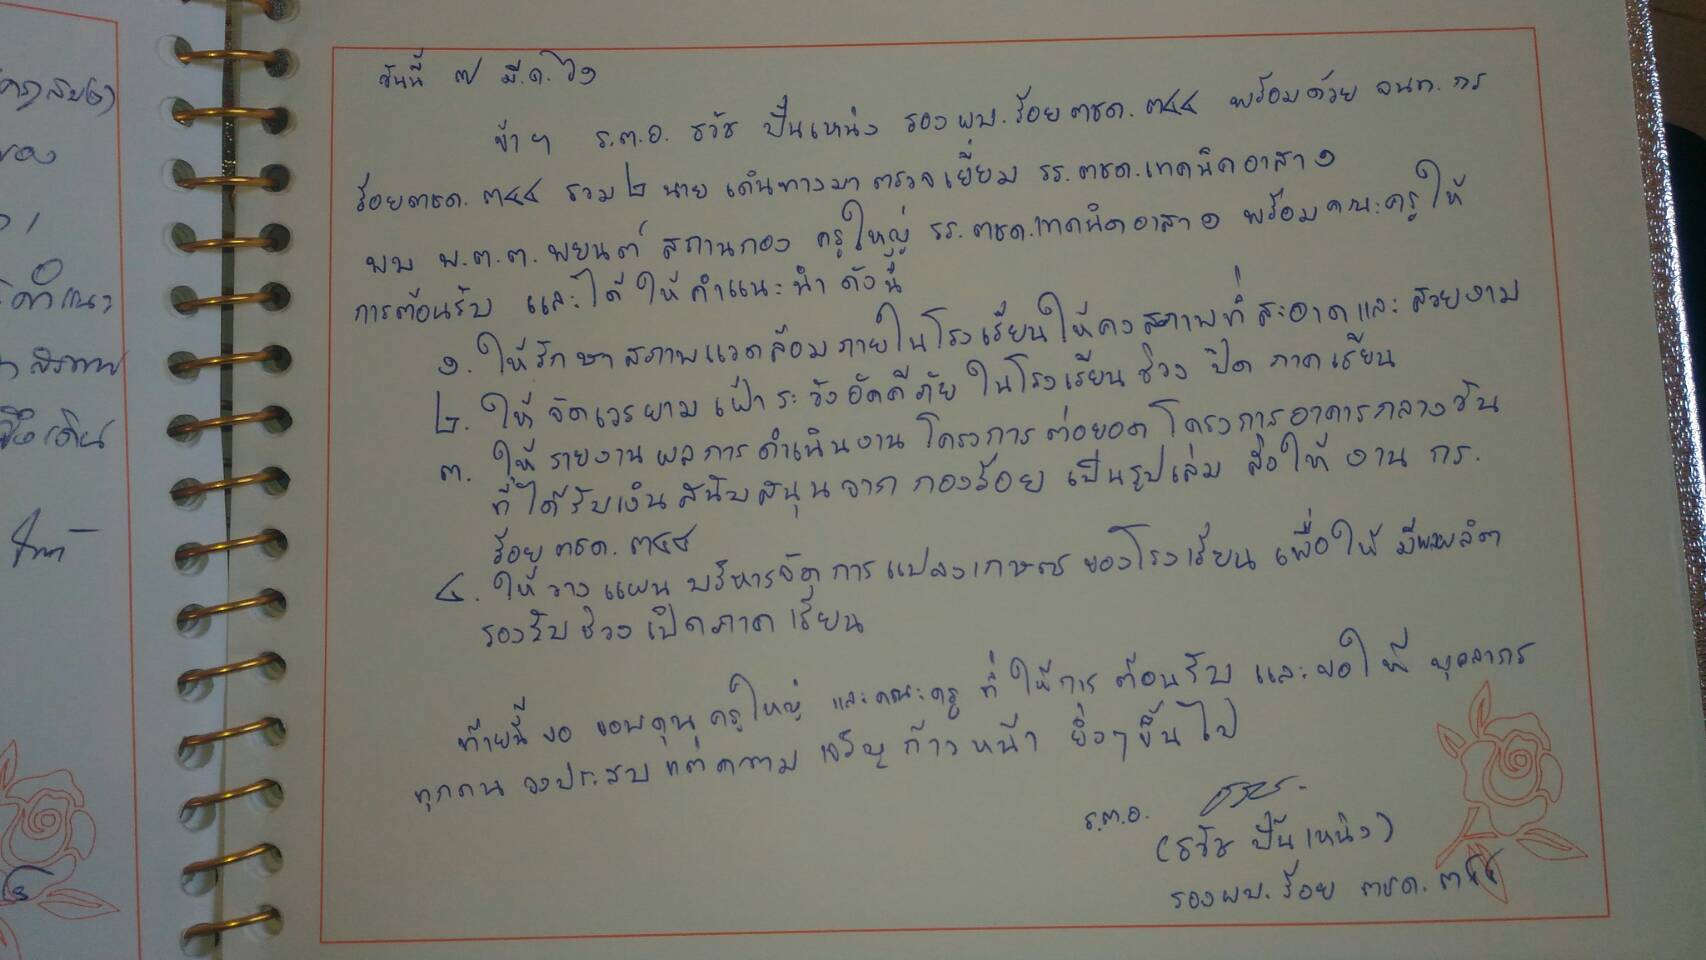 วันนี้ ๗ มี.ค. ๖๑
ข้าฯ ร.ต.อ. ธวัช ปิ่นเหน่ง รองผบ.ร้อย ตชด.๓๔๔ พร้อมด้วย จนท.กร
ร้อย ตชด. ๓๔๔ รวม ๒ นาย เดินทางมาตรวจเยี่ยม รร.ตชด.เทคนิคอาสา ๑
พบ พ.ต.ต. พยนต์ สถานกอง ครูใหญ่ รร.ตชด.เทคนิคอาสา ๑ พร้อมคณะครูให้
การต้อนรับ และได้ให้คำแนะนำ ดังนี้
๑. ให้รักษาสภาพแวดล้อมภายในโรงเรียนให้คงสภาพที่สะอาดและสวยงาม
๒. ให้จัดเวรยามเฝ้าระวังอัคคีภัยในโรงเรียนช่วงปิดภาคเรียน
๓. ให้รายงานผลการดำเนินงานโครงการต่อยอดโครงการอาหารกลางวัน
ที่ได้รับเงินสนับสนุนจากกองร้อย เป็นรูปเล่ม ส่งให้งาน กร.
ร้อย ตชด. ๓๔๔
๔. ให้วางแผนบริหารจัดการแปลงเกษตรของโรงเรียน เพื่อให้มีผลผลิต
รองรับช่วงเปิดภาคเรียน
ท้ายนี้ขอขอบคุณครูใหญ่ และคณะครูที่ให้การต้อนรับ และขอให้บุคลากร
ทุกคนจงประสบแต่ความเจริญก้าวหน้ายิ่งๆขึ้นไป
ร.ต.อ.
(ธวัช ปิ่นเหน่ง)
รองผบ.ร้อย ตชด. ๓๔๔